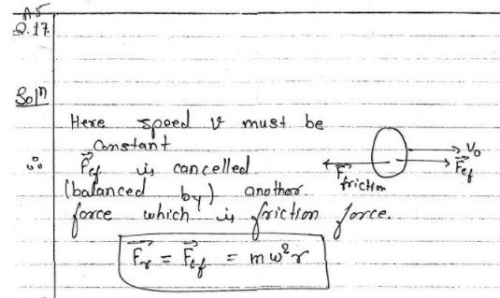 A5
Q.17.
Solⁿ
Here speed v must be
constant
∴ F⃗cf is cancelled
(balanced by) another
force which is friction force.
F⃗r = F⃗cf = mω²r
V₀
F⃗cf
F⃗ friction